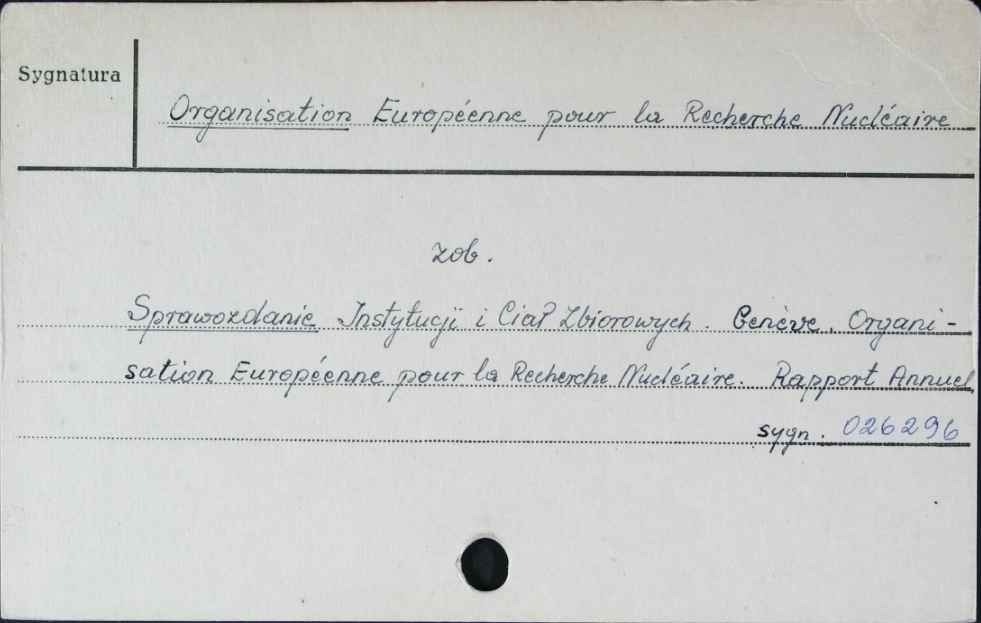 Sygnatura
Organisation Européenne pour la Recherche Nucléaire
zob.
Sprawozdanie Instytucji i Ciał Zbiorowych. Genève. Organi-
sation Européenne pour la Recherche Nucléaire. Rapport Annuel,
sygn. 026296